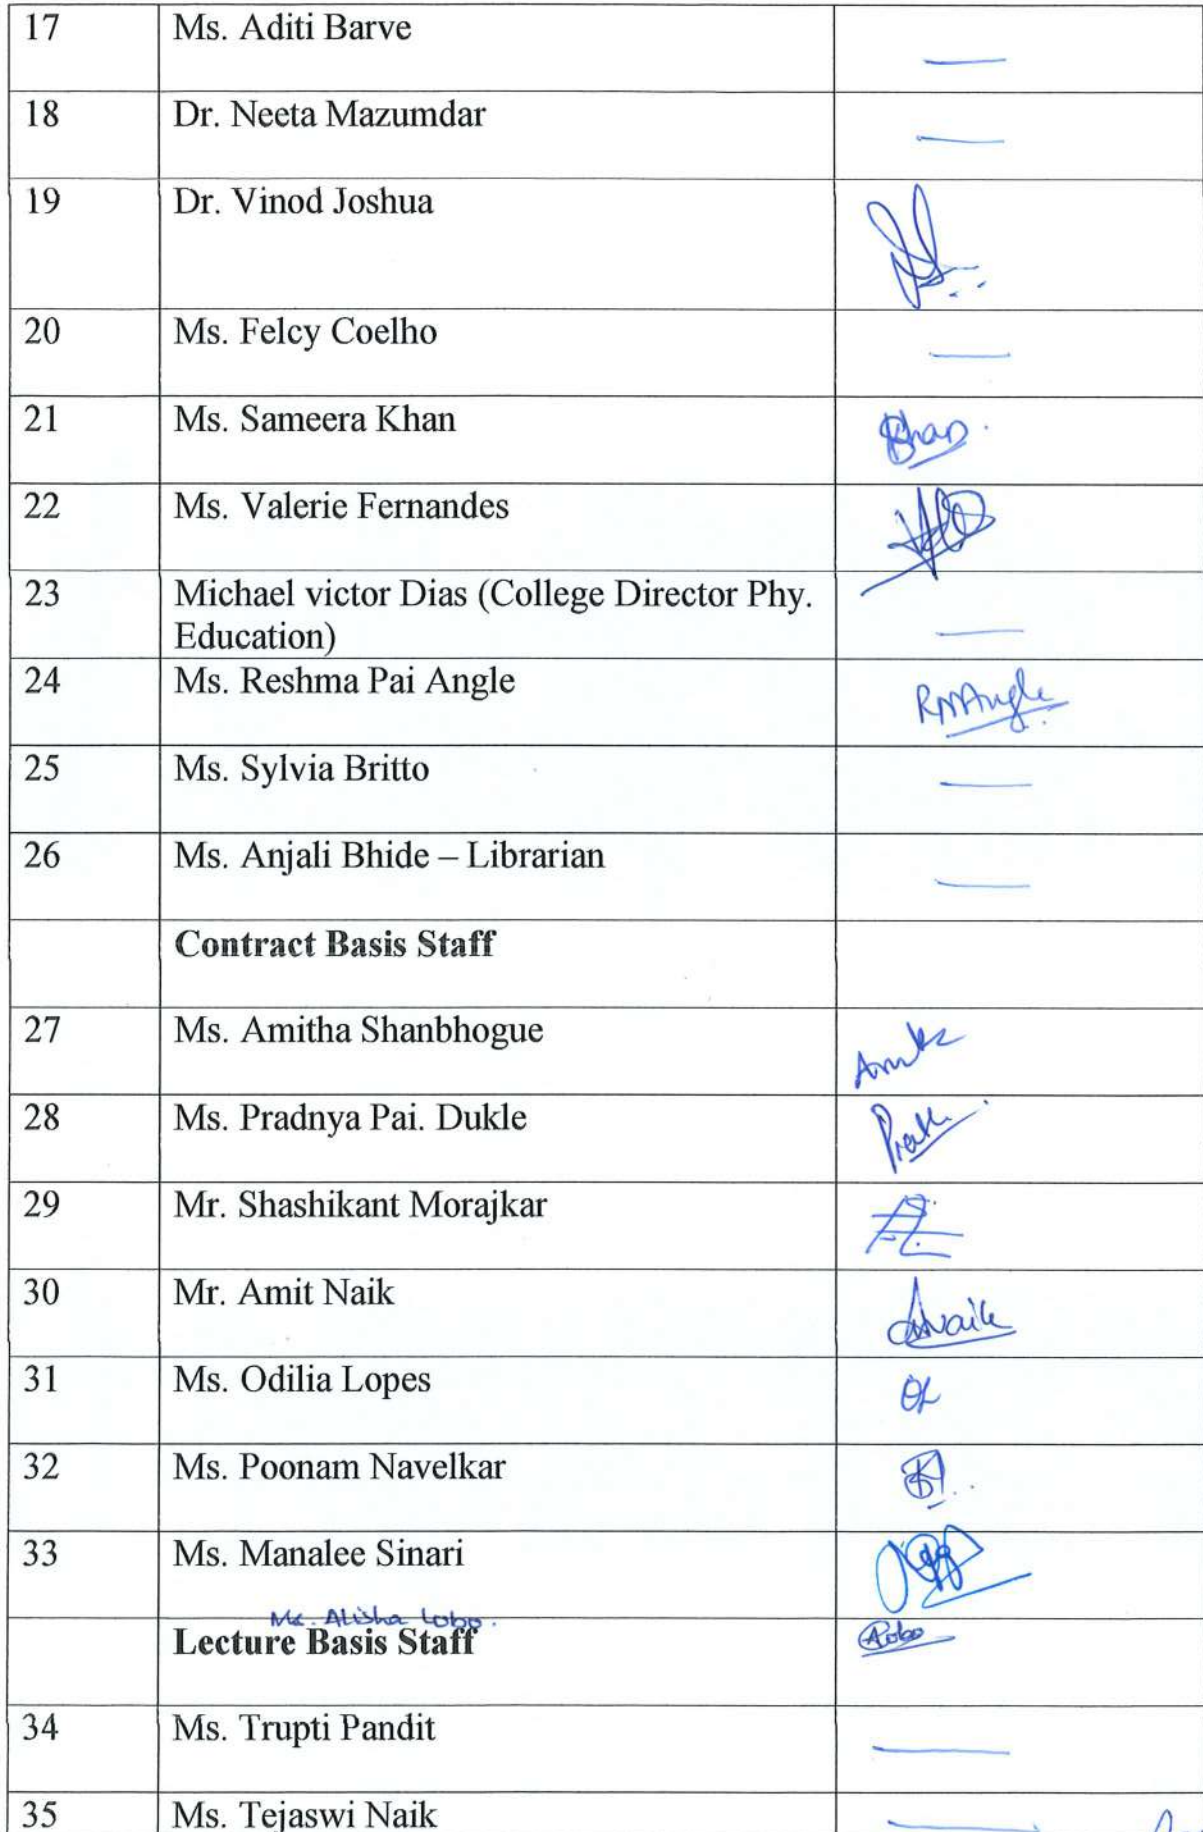 17 Ms. Aditi Barve —
18 Dr. Neeta Mazumdar —
19 Dr. Vinod Joshua
20 Ms. Felcy Coelho —
21 Ms. Sameera Khan Khan.
22 Ms. Valerie Fernandes
23 Michael victor Dias (College Director Phy.
Education) —
24 Ms. Reshma Pai Angle RPAngle
25 Ms. Sylvia Britto —
26 Ms. Anjali Bhide – Librarian —
Contract Basis Staff
27 Ms. Amitha Shanbhogue
28 Ms. Pradnya Pai. Dukle
29 Mr. Shashikant Morajkar
30 Mr. Amit Naik ANaik
31 Ms. Odilia Lopes OL
32 Ms. Poonam Navelkar
33 Ms. Manalee Sinari
Ms. Alisha Lobo.
Lecture Basis Staff ALobo
34 Ms. Trupti Pandit —
35 Ms. Tejaswi Naik —